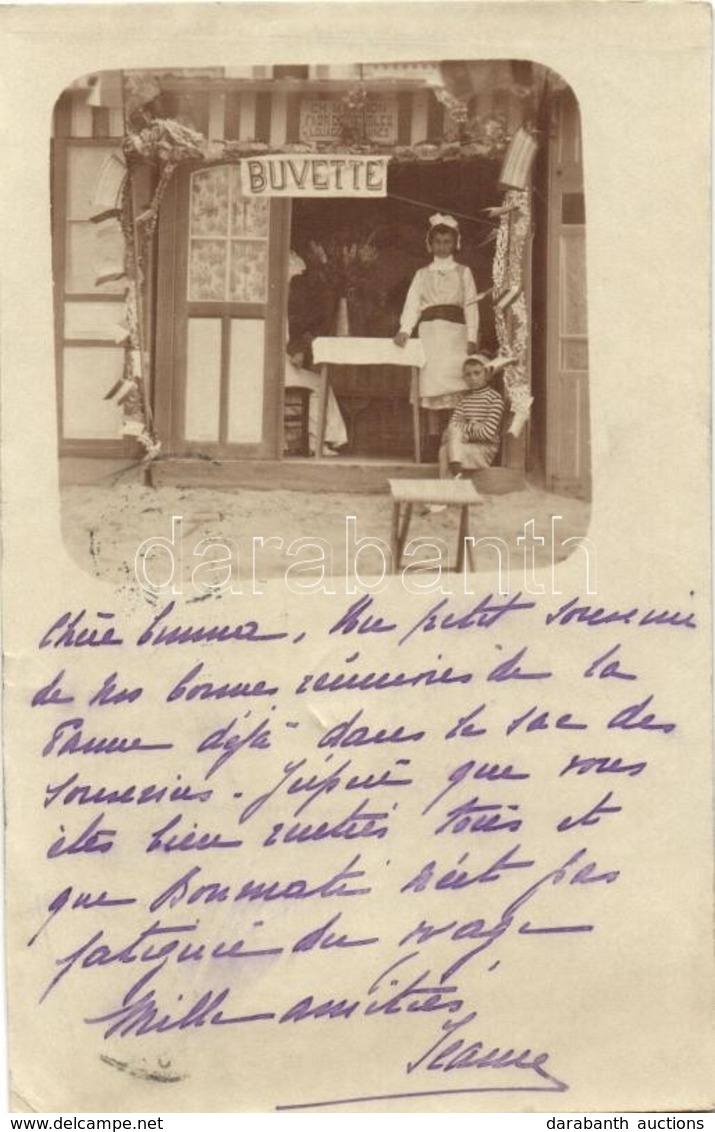 BUVETTE
darabanth
Chère Emma, Un petit souvenir
de nos bonnes réunions de la
Panne déjà dans le sac des
souvenirs. J'espère que vous
êtes bien rentrés tous et
que Bonmati n'est pas
fatiguée du voyage
Mille amitiés
Jeanne
darabanth auctions